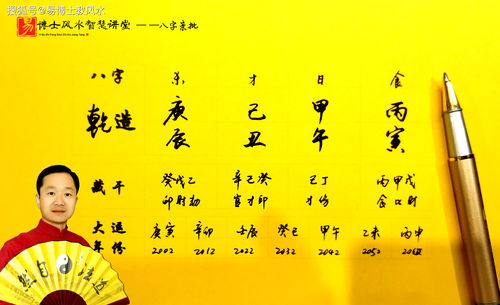 搜狐号@易博士 风水
易 博士风水智慧讲堂 ——八字亲批
Yi Bo Shi Feng Shui Zhi Hui Jiang Tang
八字 杀 才 日 食
乾造 庚 己 甲 丙
辰 丑 午 寅
藏干 癸戊乙 辛己癸 己丁 丙甲戊
印财劫 官才印 才伤 食口财
大运 庚寅 辛卯 壬辰 癸巳 甲午 乙未 丙申
年份 2002 2012 2022 2032 2042 2052 2062
然自 法道